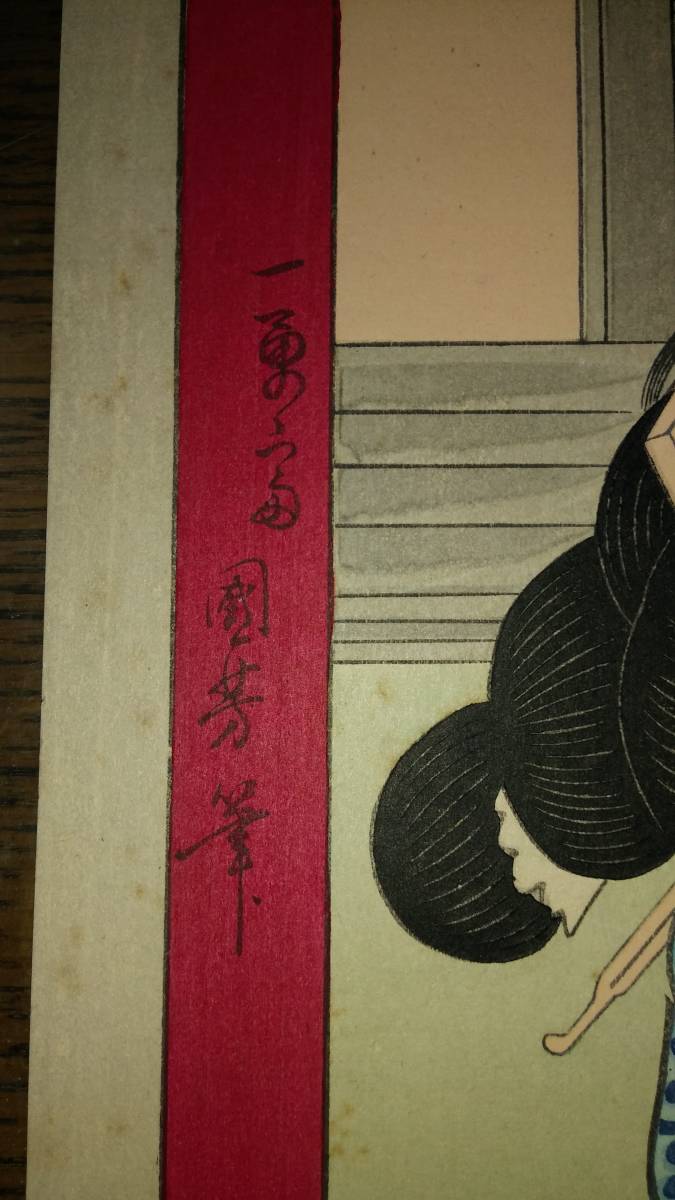 一勇齋
國芳筆